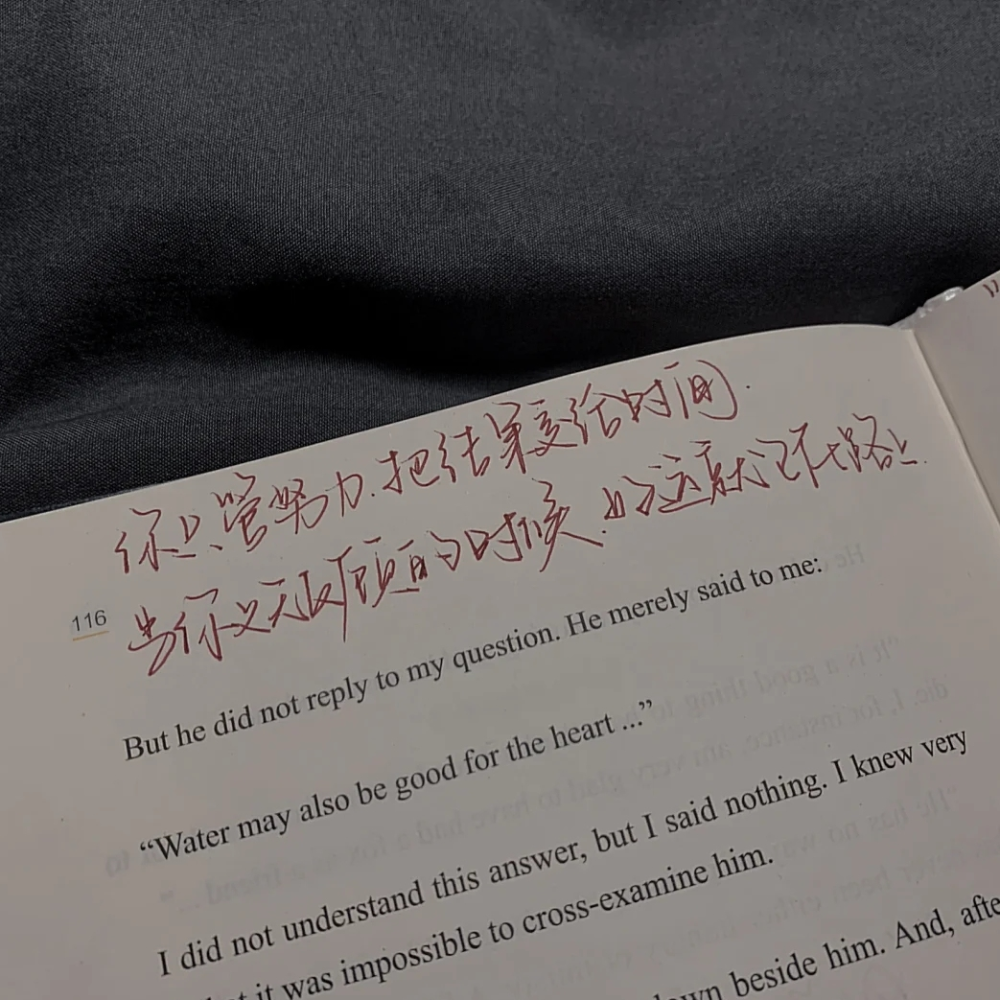 你只管努力.把结果交给时间.
当你义无反顾的时候.好运就在路上.
116
But he did not reply to my question. He merely said to me:
“Water may also be good for the heart ...”
I did not understand this answer, but I said nothing. I knew very
it was impossible to cross-examine him.
beside him. And,